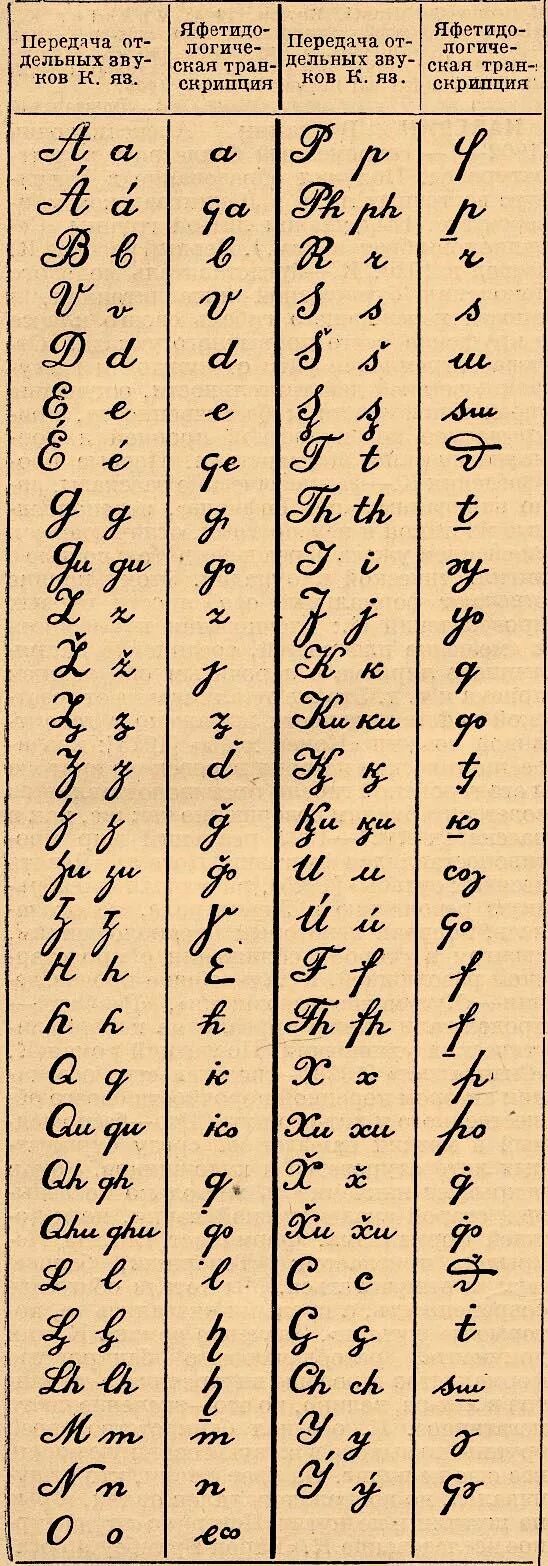 Передача от-
дельных зву-
ков К. яз.
Яфетидо-
логиче-
ская тран-
скрипция
Передача от-
дельных зву-
ков К. яз.
Яфетидо-
логиче-
ская тран-
скрипция
A a a P p φ
Á á ça Ph ph p̱
B b b R r r
V v v S s s
D d d Š š ш
E e e Ş ş sш
É é çe T t
G g g Th th ṯ
Gu gu go I i əy
Z z z J j yo
Ž ž j K k q
Z̧ z̧ z̧ Ku ku qo
d̆ Ķ ķ ţ
ğ Ķu ķu ḵo
ğo U u
γ Ú ú ço
H h ε F f f
h h ħ Fh fh f̱
Q q k X x þ
Qu qu ko Xu xu þo
Qh qh q X̌ x̌ q̇
Qhu qhu qo X̌u x̌u q̇o
L l l C c
Ļ ļ ɧ Ç ç ṫ
Lh lh ɧ̱ Ch ch sш̱
M m m Y y ə
N n n Ý ý çə
O o